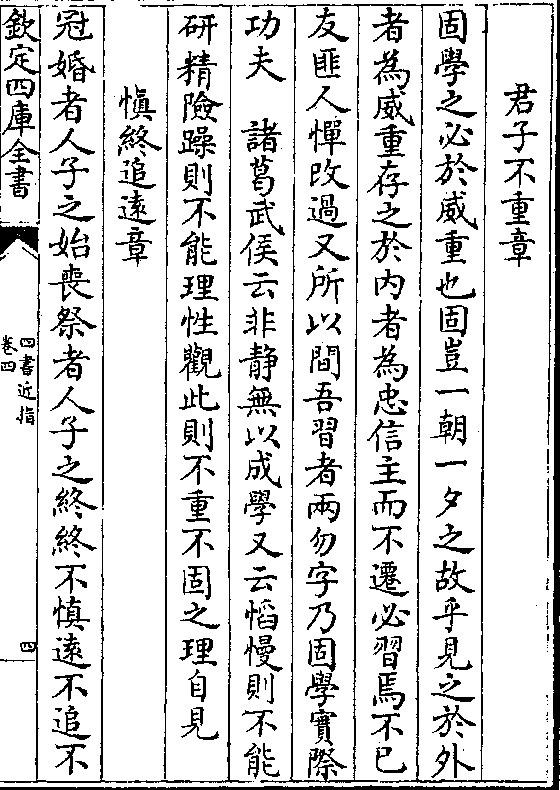 君子不重章
固學之必於威重也固豈一朝一夕之故乎見之於外
者為威重存之於内者為忠信主而不遷必習焉不已
友匪人憚改過又所以間吾習者兩勿字乃固學實際
功夫　諸葛武侯云非静無以成學又云慆慢則不能
研精險躁則不能理性觀此則不重不固之理自見
慎終追遠章
冠婚者人子之始喪祭者人子之終終不慎遠不追不
欽定四庫全書
四書近指
卷四
四